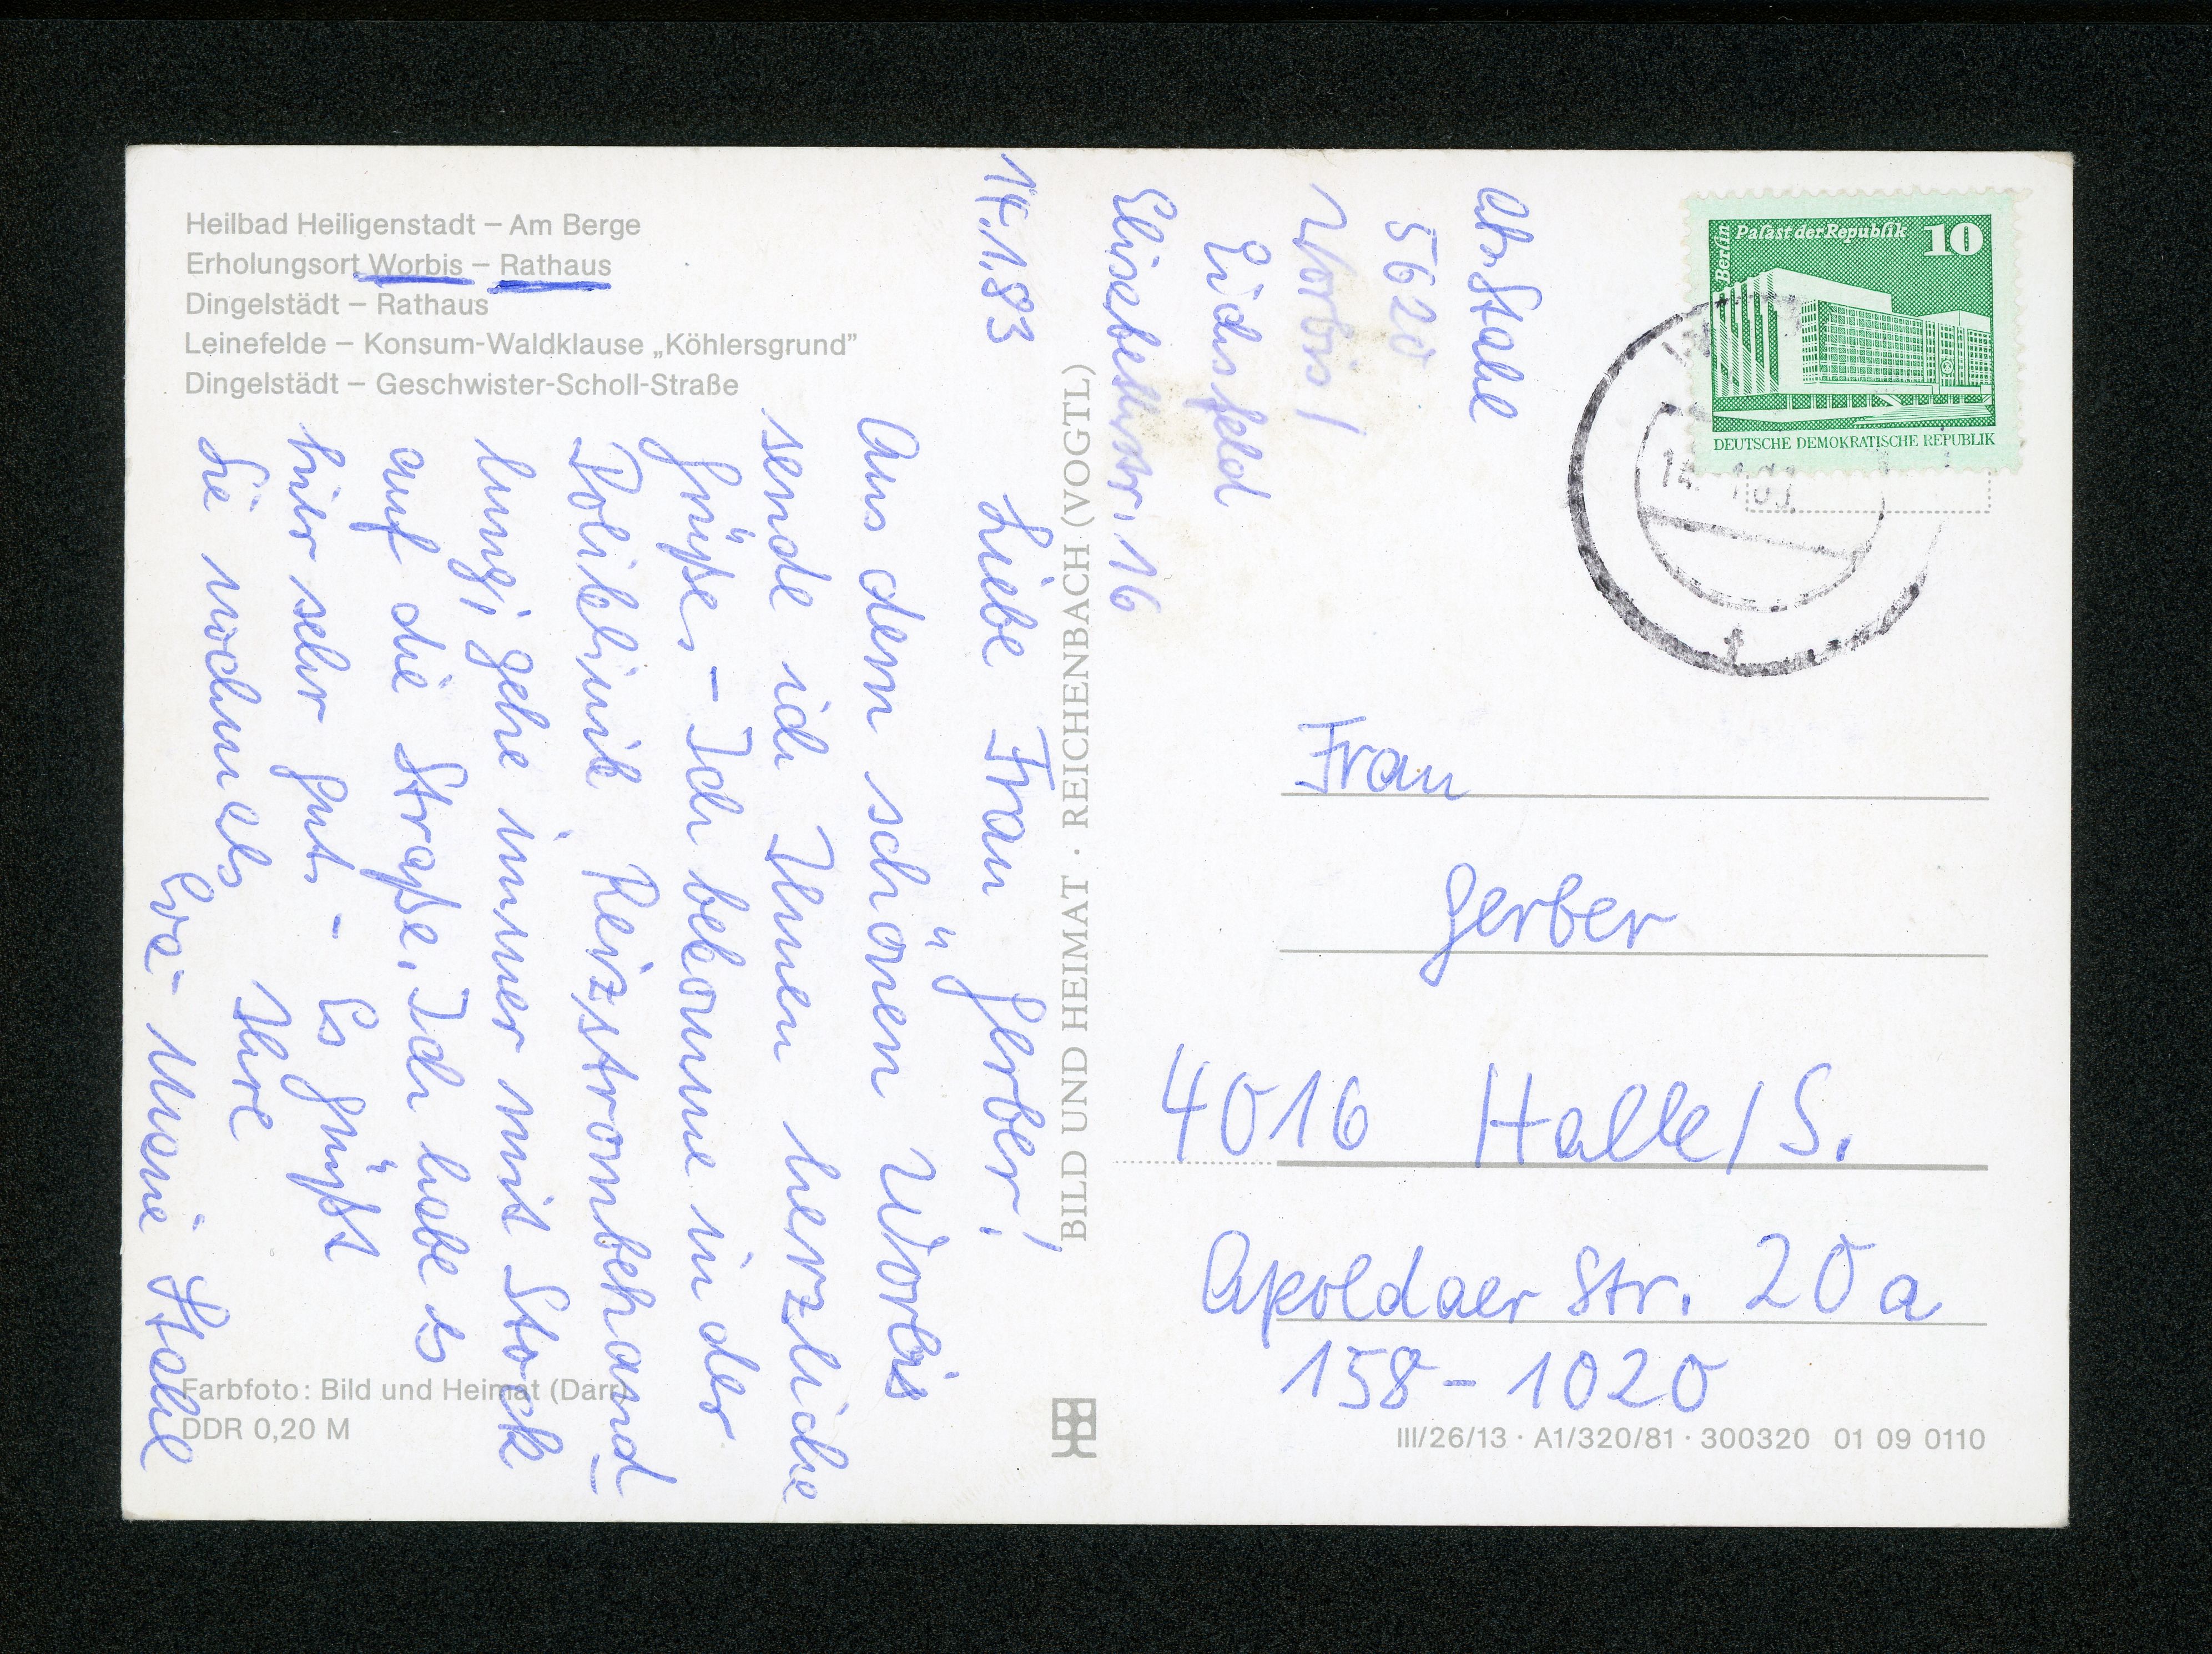 Heilbad Heiligenstadt – Am Berge
Erholungsort Worbis – Rathaus
Dingelstädt – Rathaus
Leinefelde – Konsum-Waldklause „Köhlersgrund”
Dingelstädt – Geschwister-Scholl-Straße
14.1.83
Liebe Frau Gerber!
Aus dem schönen Worbis
sende ich Ihnen herzliche
Grüße, – Ich bekomme in der
Poliklinik Reizstrombehand-
lung, gehe immer mit Stock
auf die Straße. Ich habe es
hier sehr gut. – Es grüßt
Sie nochmals Ihre
Eva-Marie Stahl
Farbfoto: Bild und Heimat (Darr)
DDR 0,20 M
BILD UND HEIMAT · REICHENBACH (VOGTL)
Abs. Stahl
5620
Worbis/
Eichsfeld
Elisabethstr. 16
Berlin
Palast der Republik
10
DEUTSCHE DEMOKRATISCHE REPUBLIK
14.-1.83
Frau
Gerber
4016 Halle/S.
Apoldaer Str. 20a
158-1020
III/26/13 · A1/320/81 · 300320 01 09 0110